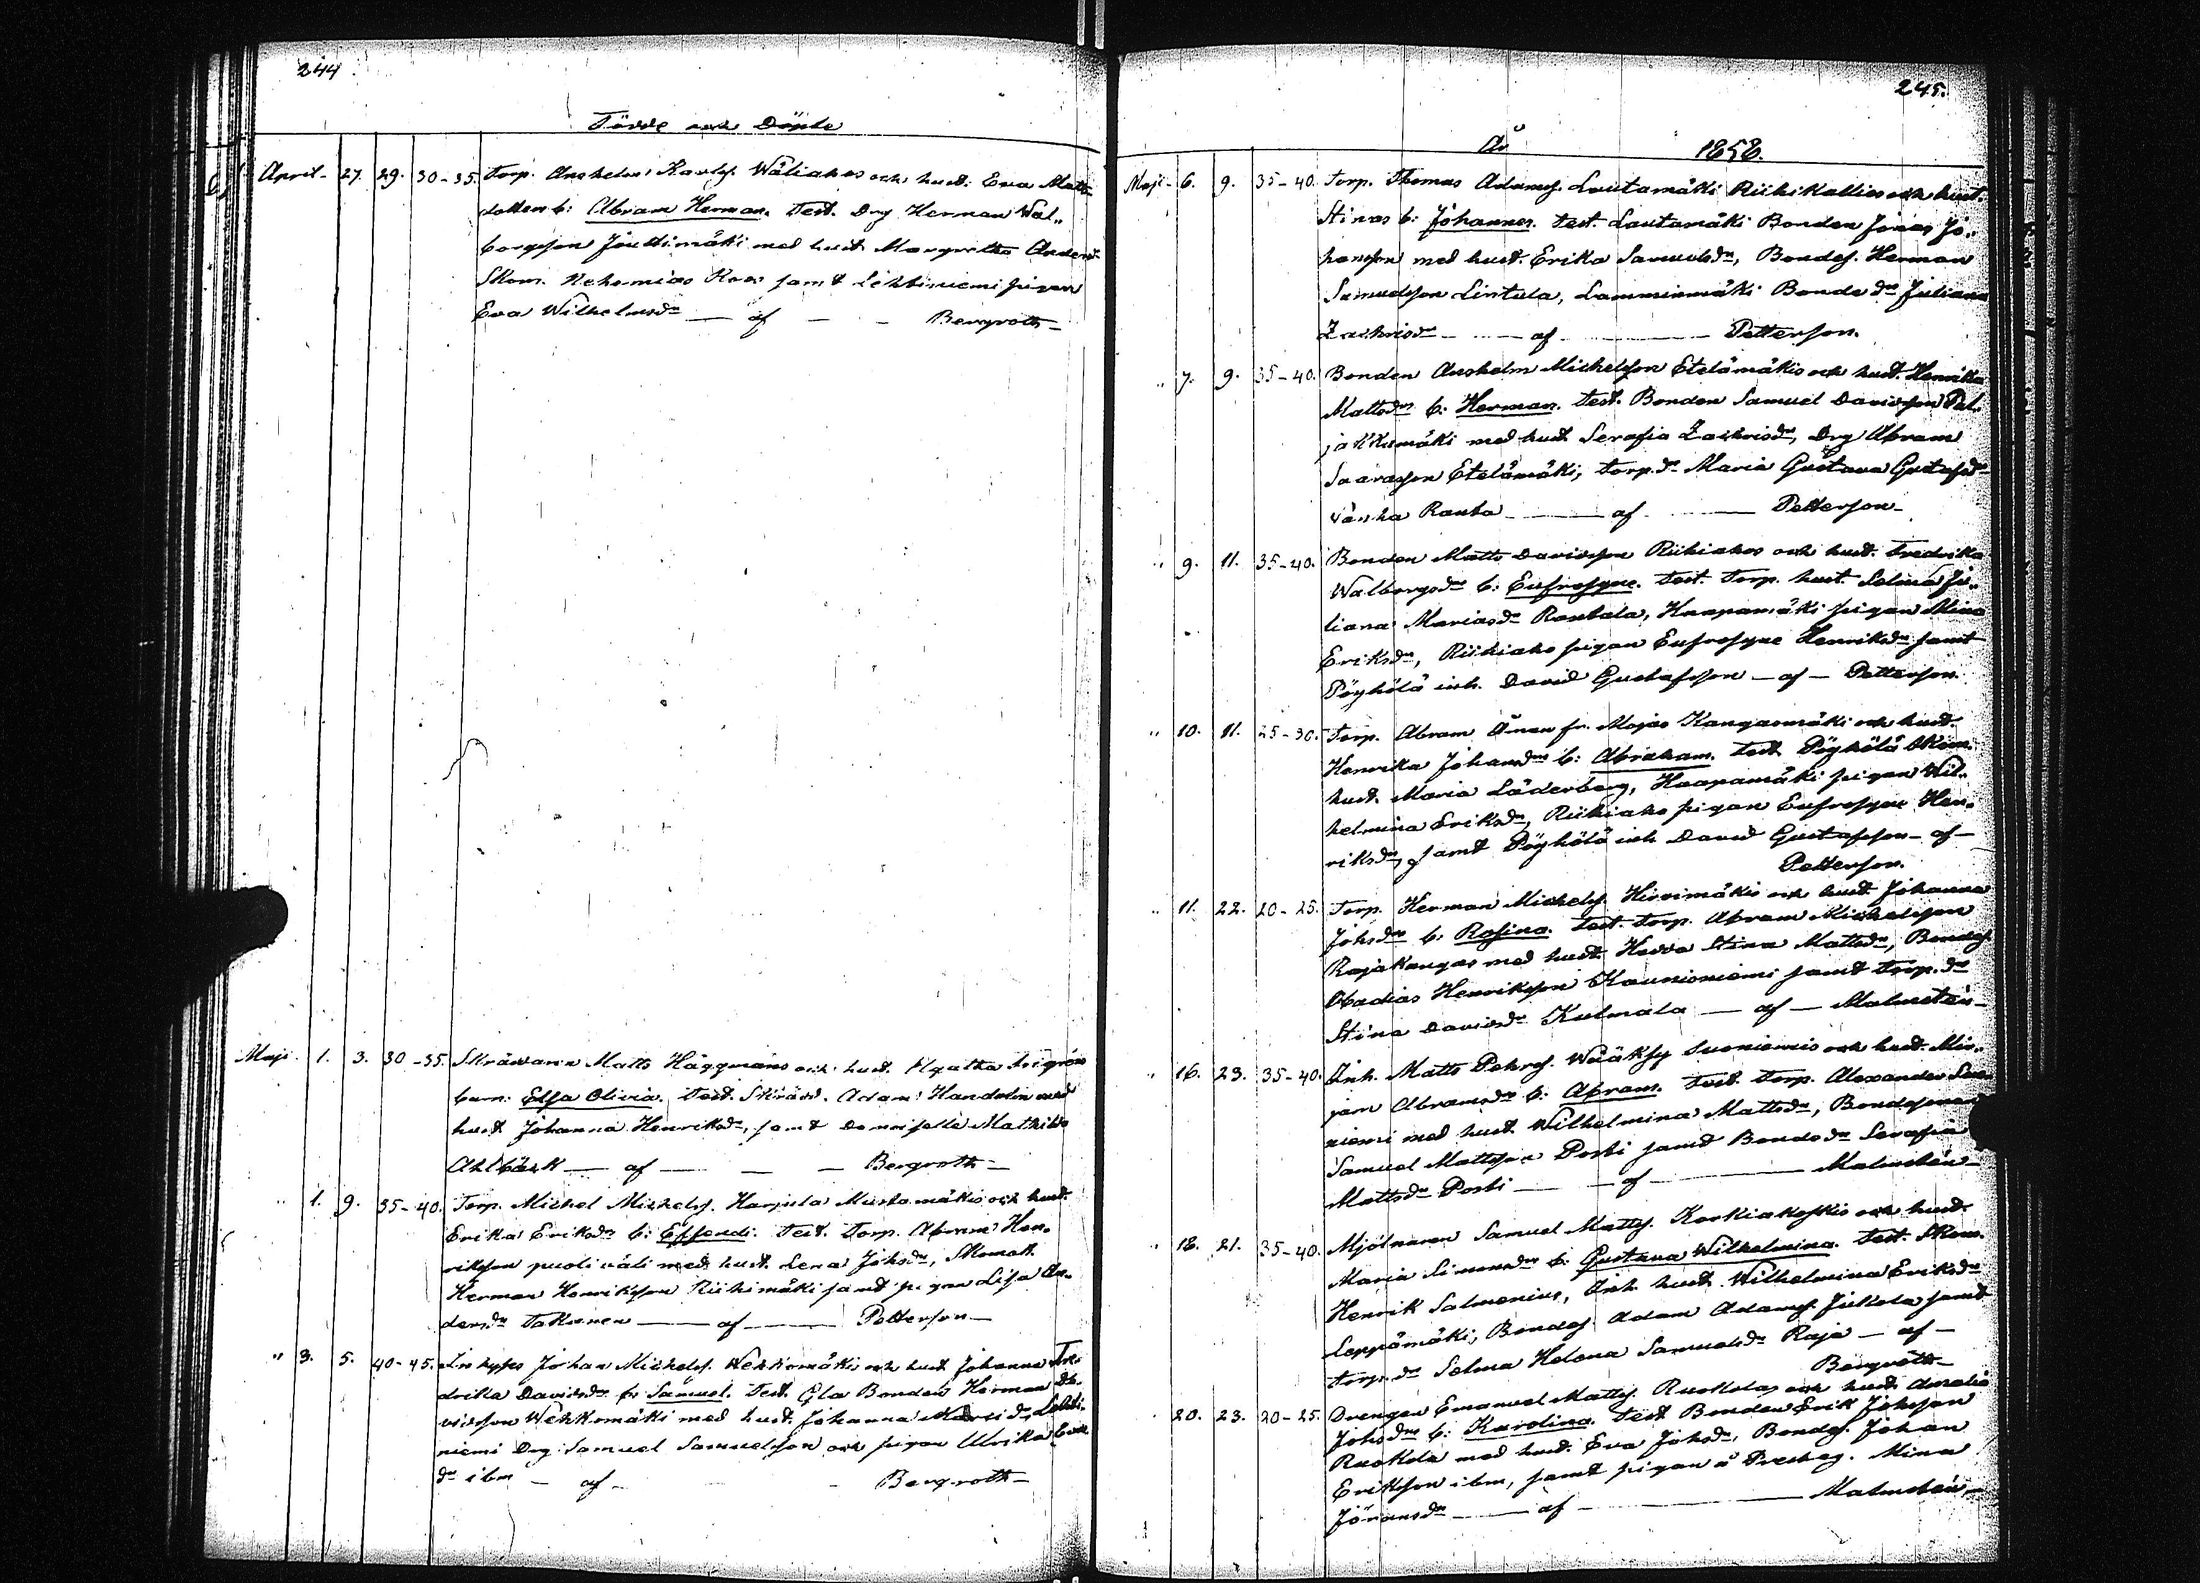 244
Födde och Döpte
April. 27. 29. 30-35. Torp. Anshelm Karlss. Wäliahos och hust. Eva Matts
dotters b: Abram Herman. Test. Drg Herman Wal„
borgsson Jouttimäki med hust. Margretha Andersdr
Skom. Nehemias Roos samt Lehtiniemi pigan
Eva Wilhelmsdr — af — — Bergroth —
Maji. 1. 3. 30-35. Skräddaren Matts Häggmans och hust. Agatha
barn: Elsa Olivia. Test. Skrädd. Adam Handolin med
hust Johanna Henriksdr, samt demoiselle Mathilda
Ahlbäck — af — — — Bergroth —
„ 1. 9. 35-40. Torp. Michel Michelss. Harjula Mustamäkis och hust.
Erika Eriksdrs b: Effendi. Test. Torp. Abram Hen„
riksson puoliväli med hust. Lena Johsdr, Skomak.
Herman Henriksson Riihimäki samt pigan Lisa An„
dersdr Takanen — af — Petterson —
„ 3. 5. 40-45. Inhyses Johan Michelss. Wehkomäkis och hust Johanna Fre
drika Davidsdrs b: Samuel. Test. Gla Bonden Herman Da„
vidsson Wehkomäki med hust. Johanna Davidsdr, Lehti„
niemi Drg Samuel Samuelsson och pigan Ulrika Eva
dr ibm — af — — Bergroth —
245.
År 1858.
Maji. 6. 9. 35-40. Torp. Thomas Adamss. Lautamäki Riihikallios och hust.
Stinas b: Johannes. Test. Lautamäki Bonden Jonas Jo„
hansson med hust. Erika Samuelsdr, Bondes. Herman
Samuelsson Lintula, Lamminmäki Bonde dr Juliana
Zachrisdr — — af — Petterson.
„ 7. 9. 35-40. Bonden Anshelm Michelsson Etelämäkis och hust. Henrika
Mattsdrs b: Herman. Test. Bonden Samuel Davidsson Pal„
jakkamäki med hust Serafia Zachrisdr, Drg Abram
Saarasson Etelämäki, torp. dr Maria Gustava Gustafsdr
Vanha Ranta — af — Petterson —
„ 9. 11. 35-40. Bonden Matts Davidsson Riihiahos och hust. Fredrika
Walborgsdrs b: Eufrosyne. Test. Torp. hust. Selma Ju„
liana Mariasdr Rantala, Haapamäki pigan Mina
Eriksdr, Riihiaho pigan Eufrosyne Henriksdr samt
Pöyhölä inh. David Gustafsson — af — Petterson.
„ 10. 11. 25-30. Torp. Abram Åman fr. Mojas Kangasmäki och hust.
Henrika Johansdrs b: Abraham. Test. Pöyhölä Skom.
hust. Maria Läderberg, Haapamäki pigan Wil„
helmina Eriksdr, Riihiaho pigan Eufrosyne Hen„
riksdr, samt Pöyhölä inh David Gustafsson — af —
Petterson.
„ 11. 22. 20-25. Torp. Herman Michelss. Hirvimäkis och hust. Johanna
Johsdrs b: Rosina. Test. Torp. Abram Michelsson
Rajakangas med hust. Hedda Stina Mattsdr, Bondes
Obadias Henriksson Kaunisniemi samt torp. dr
Stina Davidsdr Kulmala — af — Malmstén —
„ 16. 23. 35-40. Inh. Matts Pehrss. Wääksy Suoniemis och hust. Mir„
jam Abramsdrs b: Abram. Test. Torp. Alexander Suo
niemi med hust. Wilhelmina Mattsdr, Bondesonen
Samuel Mattsson Posti samt Bonde dr Serafia
Mattsdr Posti — af — Malmstén —
„ 18. 21. 35-40. Mjölnaren Samuel Matts. Koskiakoskis och hust.
Maria Simonsdrs b: Gustava Wilhelmina. Test. Skom.
Henrik Salmenius, Inh. hust. Wilhelmina Eriksdr
Leppämäki, Bondes Adam Adamss. Jukola samt
torp. dr Selma Helena Samuelsdr Raja — af —
Bergroth —
„ 20. 23. 20-25. Drengen Emanuel Matts. Ruokolas och hust. Amalia
Johsdrs b: Karolina. Test Bonden Erik Johsson
Ruokola med hust. Eva Johsdr, Bondes. Johan
Eriksson ibm, samt pigan å Presteg. Mina
Jöransdr — af — Malmstén —